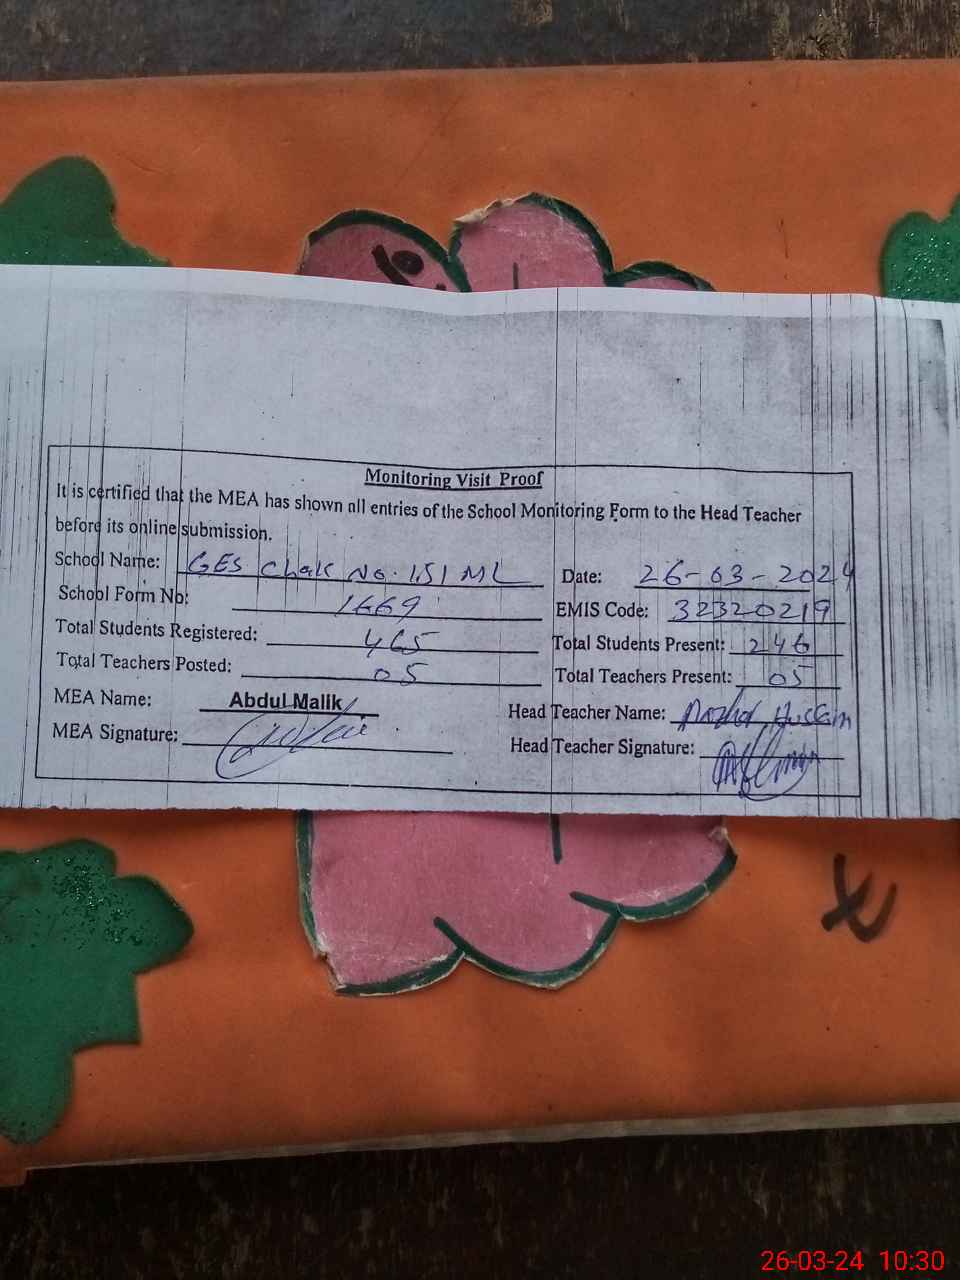 Monitoring Visit Proof
It is certified that the MEA has shown all entries of the School Monitoring Form to the Head Teacher
before its online submission.
School Name: GES Chak No. 151 ML Date: 26-03-2024
School Form No: 1669 EMIS Code: 32320219
Total Students Registered: 465 Total Students Present: 246
Total Teachers Posted: 05 Total Teachers Present: 05
MEA Name: Abdul Malik Head Teacher Name: Hussain
MEA Signature: Head Teacher Signature:
26-03-24 10:30